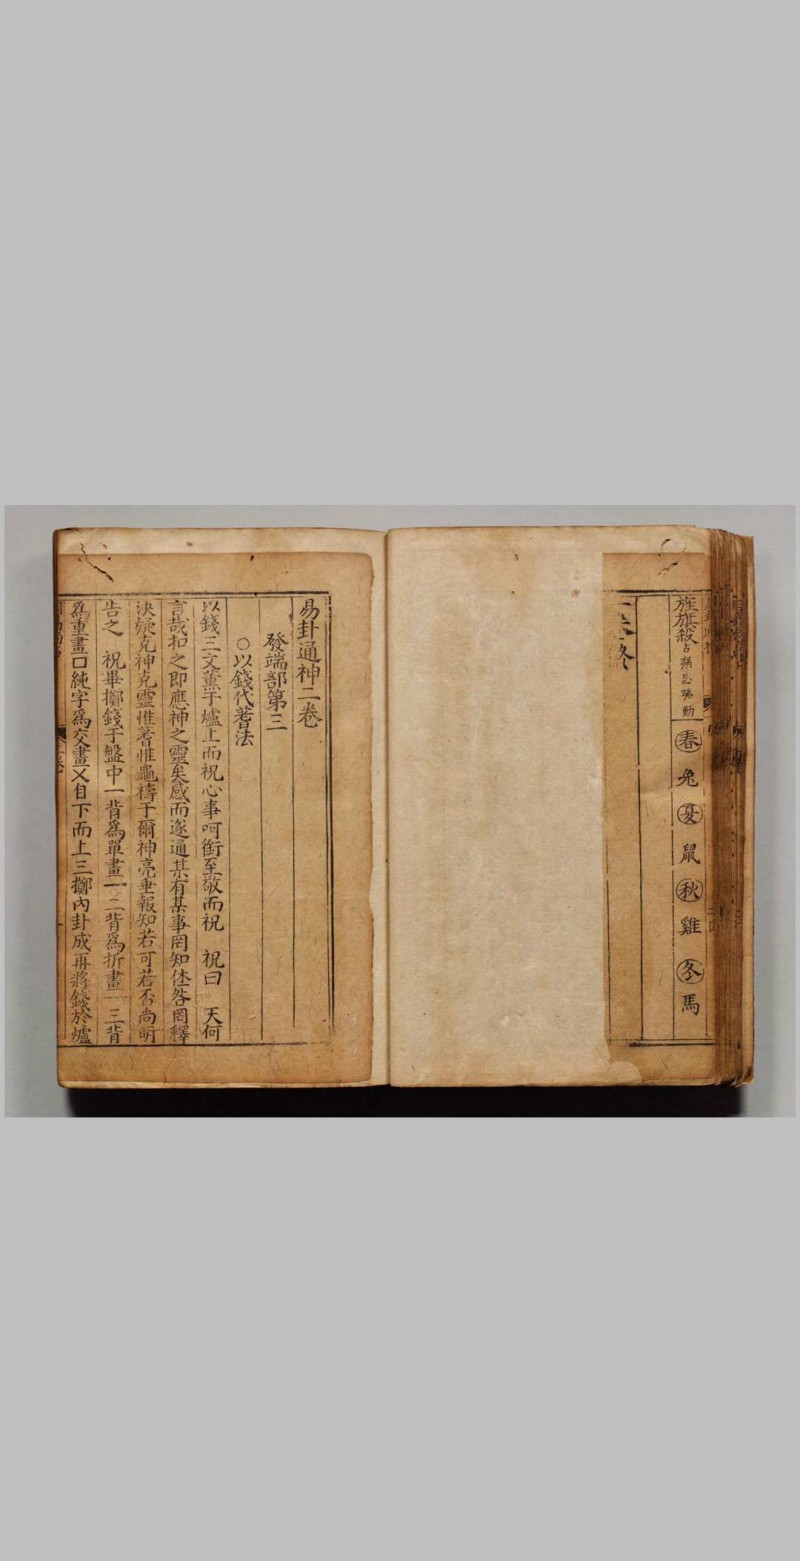 旌旗殺占病怎移動 ㊝春 兔 夏 鼠 秋 雞 冬 馬
終
易卦通神二卷
發端部第三
○以錢代蓍法
以錢三文薰于爐上而祝心事呵銜至敬而祝 祝曰 天何
言哉扣之即應神之靈矣感而遂通某有某事罔知休咎罔釋
決疑克神克靈惟蓍惟龜禱于爾神亮垂報知若可若否尚明
告之 祝畢擲錢于盤中一背爲單畫一二背爲折畫一三背
爲重畫口純字爲交畫㐅自下而上三擲內卦成再將錢於爐